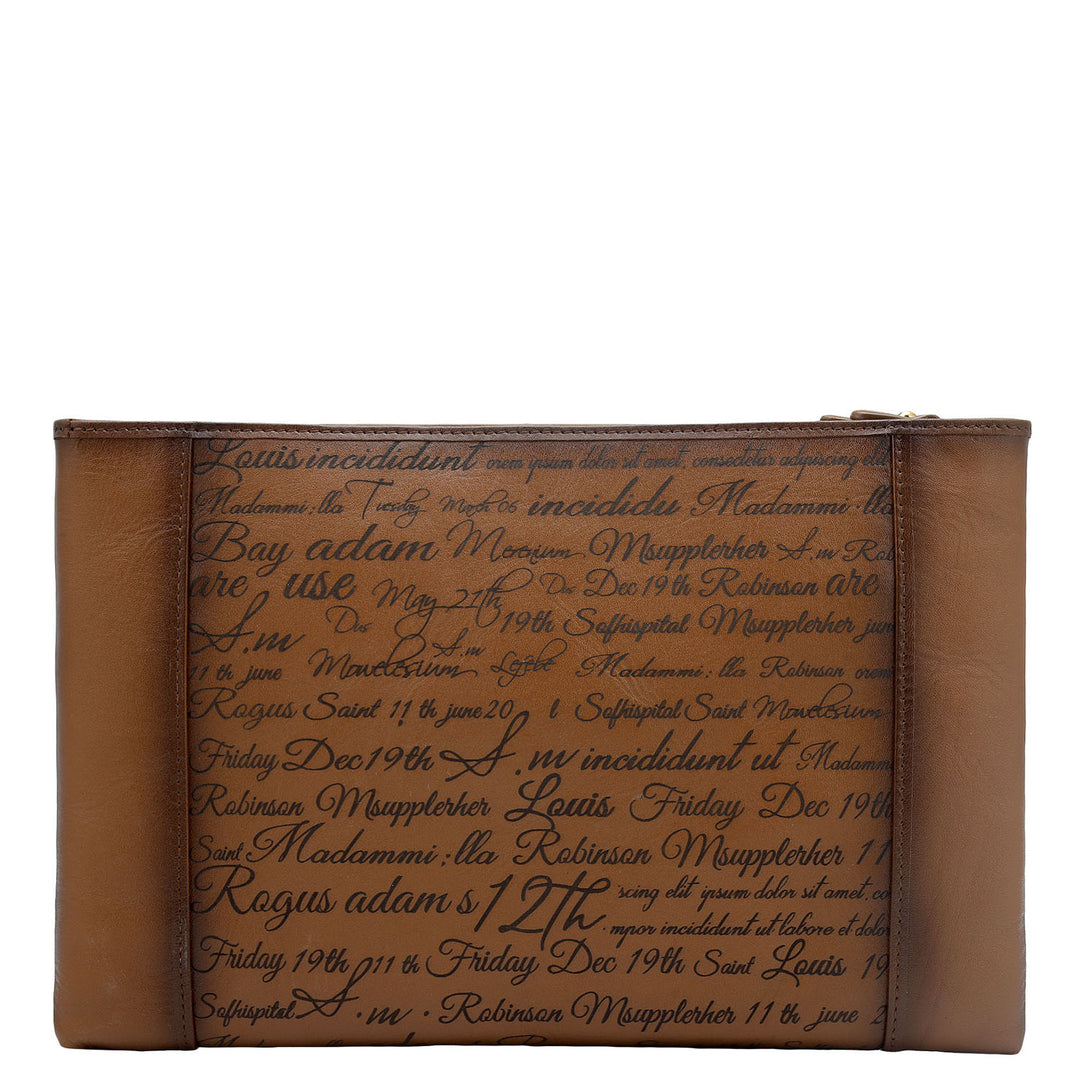 Louis incididunt orem ipsum dolor sit amet, consectetur adipiscing elit
Madammi : lla Tuesday March 06 incididu Madammi : lla
Bay adam Merenium Msupplerher S.m Rob
are use May 21th Das Dec 19th Robinson are
S.m Das S.m 19th Sofhispital Msupplerher june
11 th june Mowelesium Madammi : lla Robinson orem
Rogus Saint 11 th june 20 l Sofhispital Saint Mowelesium
Friday Dec 19th S.m incididunt ut Madamm
Robinson Msupplerher Louis Friday Dec 19th
Saint Madammi : lla Robinson Msupplerher 11
Rogus adam s 12th scing elit ipsum dolor sit amet, co
mpor incididunt ut labore et dolor
Friday 19th 11 th Friday Dec 19th Saint Louis 19
Sofhispital S.m . Robinson Msupplerher 11 june 2